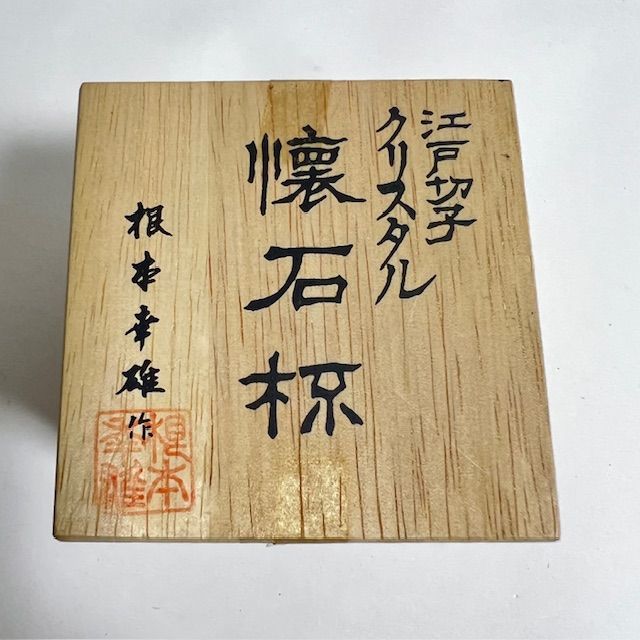 江戸切子
クリスタル
懐石杯
根本幸雄作
根本
幸雄